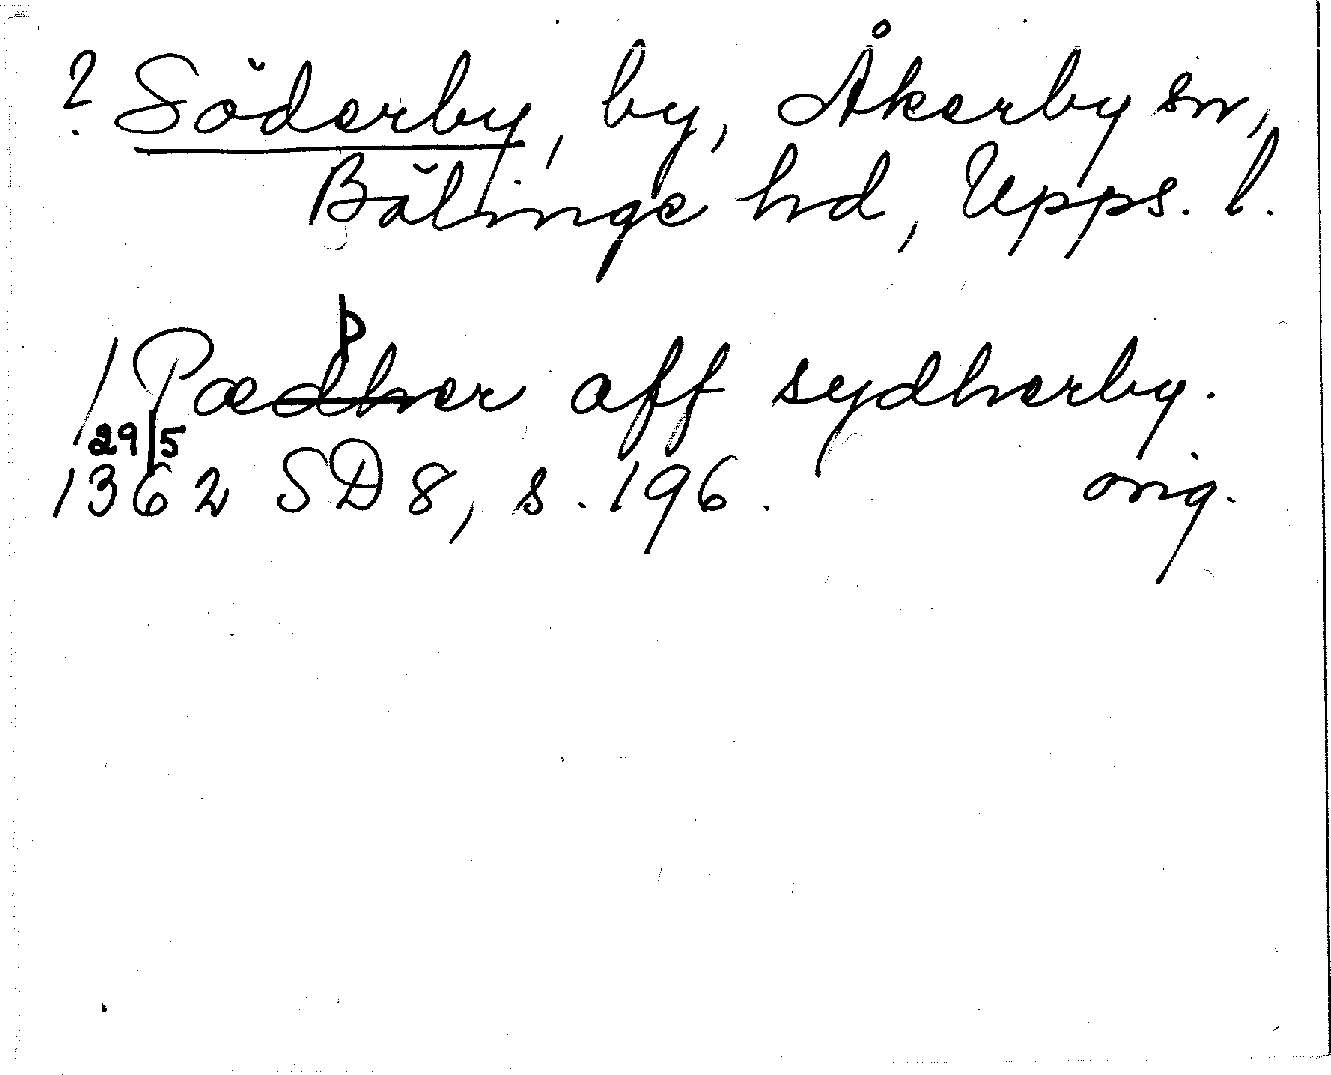 ? Söderby, by, Åkerby sn,
Bälinge hd, Upps. l.
/ Pæþer aff sydherby.
29/5
1362 SD 8, s. 196. orig.